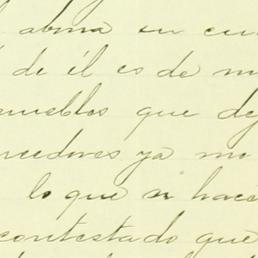 abma su cu
de él es de m
muebles que de
reedores ya mo
lo que si hace
contestado que